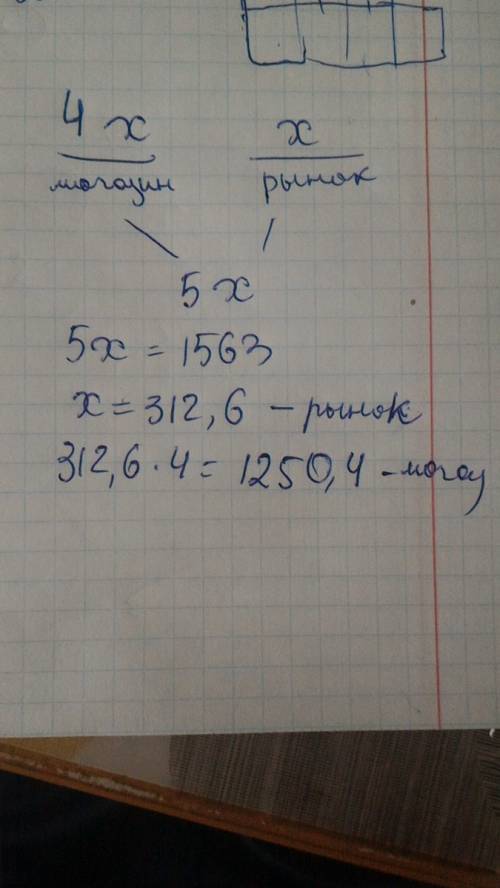 4x x
магазин рынок
5x
5x = 1563
x = 312,6 - рынок
312,6 · 4 = 1250,4 - магаз